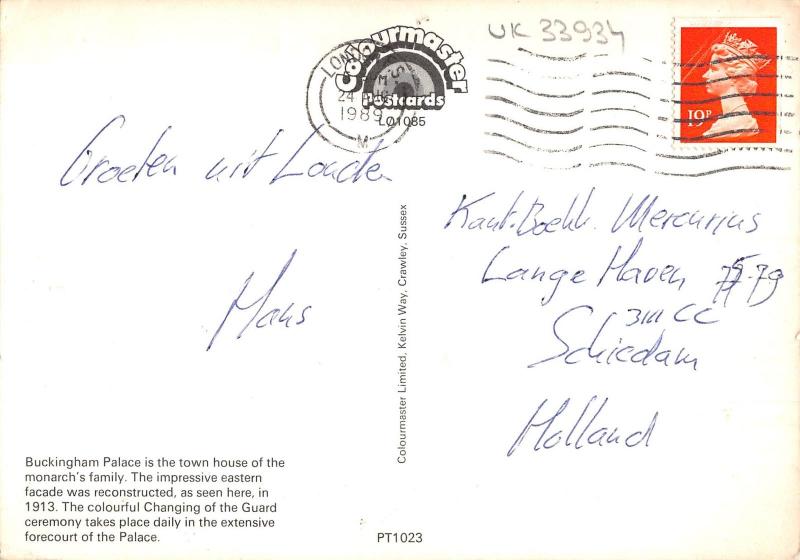 UK 33934
Colourmaster
Postcards
LO1085
LON
24
1989
M
19P
Groeten uit Londen
Hans
Kant. Boekh. Mercurius
Lange Haven 75-79
3111 CC
Schiedam
Holland
Colourmaster Limited, Kelvin Way, Crawley, Sussex
Buckingham Palace is the town house of the
monarch's family. The impressive eastern
facade was reconstructed, as seen here, in
1913. The colourful Changing of the Guard
ceremony takes place daily in the extensive
forecourt of the Palace.
PT1023